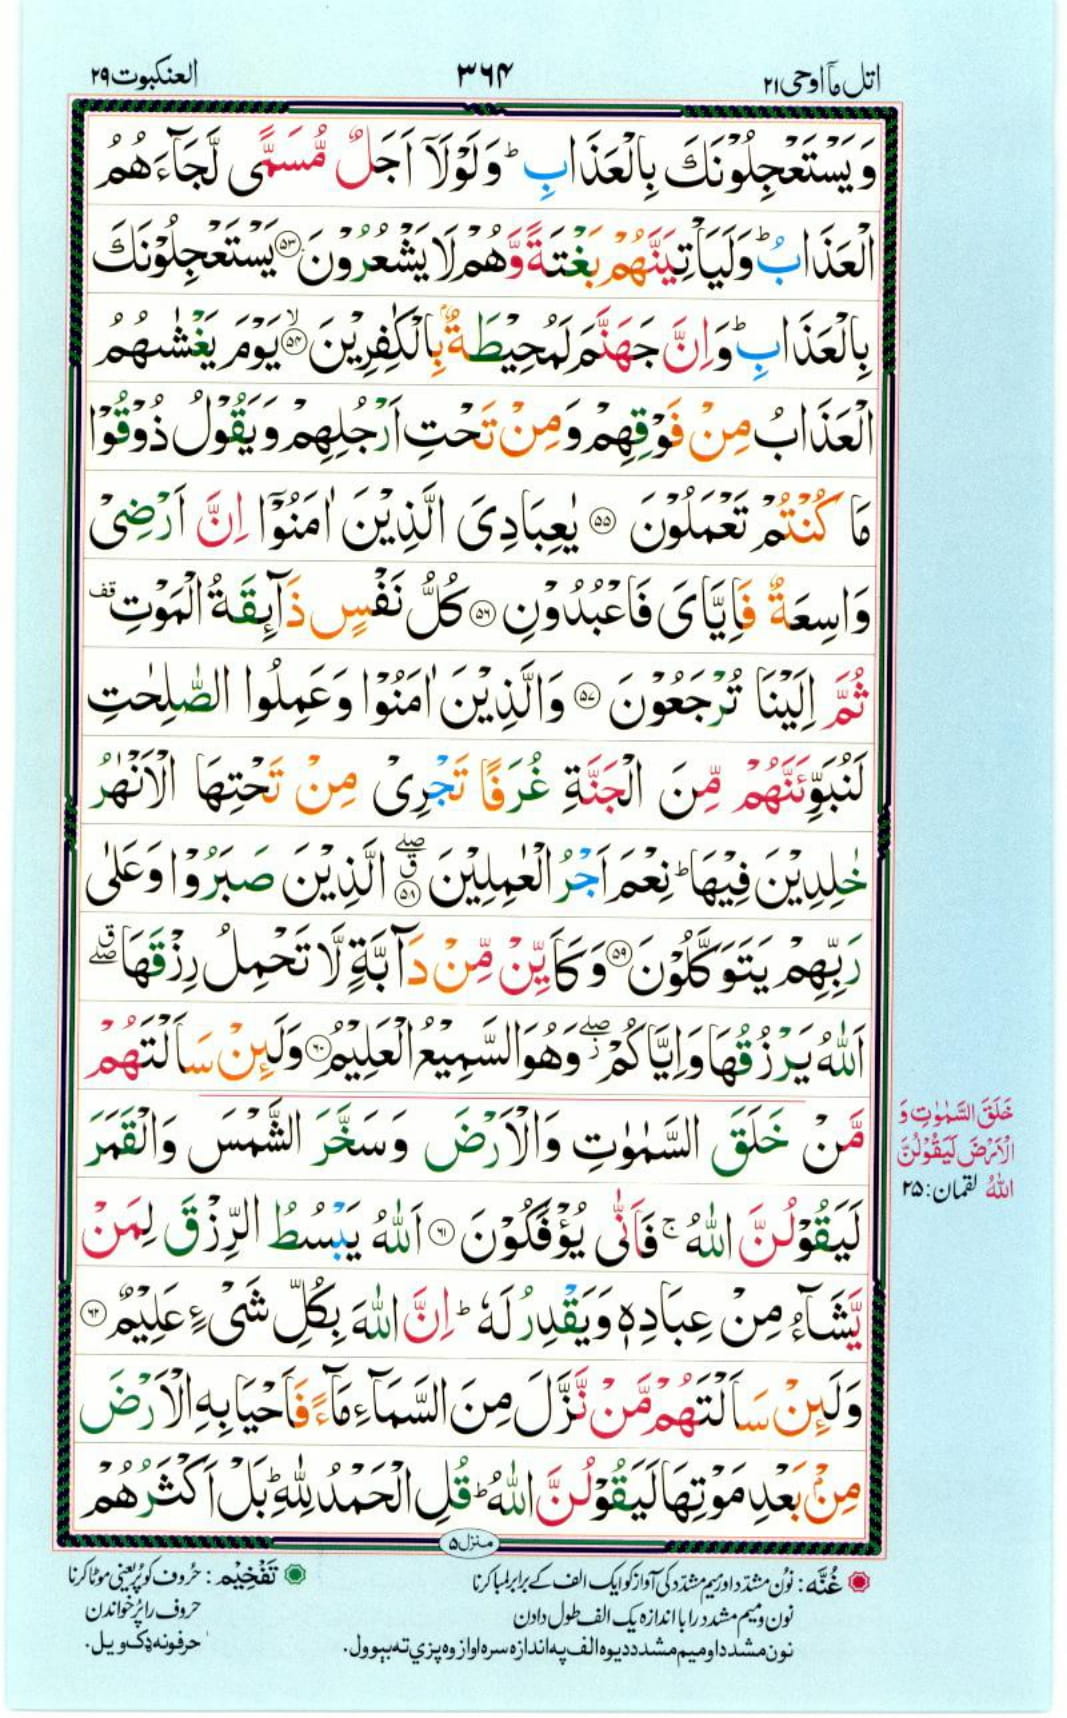 اتل مآ اوحی ۲۱
۳۶۴
العنکبوت ۲۹
وَيَسْتَعْجِلُوْنَكَ بِالْعَذَابِ ؕ وَلَوْلَاۤ اَجَلٌ مُّسَمًّى لَّجَآءَهُمُ
الْعَذَابُ ؕ وَلَيَاْتِيَنَّهُمْ بَغْتَةً وَّهُمْ لَا يَشْعُرُوْنَ ۝۵۳ يَسْتَعْجِلُوْنَكَ
بِالْعَذَابِ ؕ وَاِنَّ جَهَنَّمَ لَمُحِيْطَةٌۢ بِالْكٰفِرِيْنَ ۝۵۴ۙ يَوْمَ يَغْشٰىهُمُ
الْعَذَابُ مِنْ فَوْقِهِمْ وَمِنْ تَحْتِ اَرْجُلِهِمْ وَيَقُوْلُ ذُوْقُوْا
مَا كُنْتُمْ تَعْمَلُوْنَ ۝۵۵ يٰعِبَادِيَ الَّذِيْنَ اٰمَنُوْۤا اِنَّ اَرْضِيْ
وَاسِعَةٌ فَاِيَّايَ فَاعْبُدُوْنِ ۝۵۶ كُلُّ نَفْسٍ ذَآئِقَةُ الْمَوْتِ قف
ثُمَّ اِلَيْنَا تُرْجَعُوْنَ ۝۵۷ وَالَّذِيْنَ اٰمَنُوْا وَعَمِلُوا الصّٰلِحٰتِ
لَنُبَوِّئَنَّهُمْ مِّنَ الْجَنَّةِ غُرَفًا تَجْرِيْ مِنْ تَحْتِهَا الْاَنْهٰرُ
خٰلِدِيْنَ فِيْهَا ؕ نِعْمَ اَجْرُ الْعٰمِلِيْنَ ۝۵۸ ق صلے الَّذِيْنَ صَبَرُوْا وَعَلٰى
رَبِّهِمْ يَتَوَكَّلُوْنَ ۝۵۹ وَكَاَيِّنْ مِّنْ دَآبَّةٍ لَّا تَحْمِلُ رِزْقَهَا ق صلے
اَللّٰهُ يَرْزُقُهَا وَاِيَّاكُمْ ز صلے وَهُوَ السَّمِيْعُ الْعَلِيْمُ ۝۶۰ وَلَئِنْ سَاَلْتَهُمْ
مَّنْ خَلَقَ السَّمٰوٰتِ وَالْاَرْضَ وَسَخَّرَ الشَّمْسَ وَالْقَمَرَ
لَيَقُوْلُنَّ اللّٰهُ ۚ فَاَنّٰى يُؤْفَكُوْنَ ۝۶۱ اَللّٰهُ يَبْسُطُ الرِّزْقَ لِمَنْ
يَّشَآءُ مِنْ عِبَادِهٖ وَيَقْدِرُ لَهٗ ؕ اِنَّ اللّٰهَ بِكُلِّ شَيْءٍ عَلِيْمٌ ۝۶۲
وَلَئِنْ سَاَلْتَهُمْ مَّنْ نَّزَّلَ مِنَ السَّمَآءِ مَآءً فَاَحْيَا بِهِ الْاَرْضَ
مِنْۢ بَعْدِ مَوْتِهَا لَيَقُوْلُنَّ اللّٰهُ ؕ قُلِ الْحَمْدُ لِلّٰهِ ؕ بَلْ اَكْثَرُهُمْ
خَلَقَ السَّمٰوٰتِ وَ
الْاَرْضَ لَيَقُوْلُنَّ
اللّٰهُ لقمان : ۲۵
منزل ۵
غُنَّه : نُون مشدّد اور میم مشدّد کی آواز کو ایک الف کے برابر لمبا کرنا
نون و میم مشدد را با اندازه یک الف طول دادن
نون مشدد او میم مشدد دیوه الف په اندازه سره اواز وه پزي ته بېوول.
تَفْخِیْم : حُروف کو پُر یعنی موٹا کرنا
حروف را پُر خواندن
حرفونه ډک ویل.